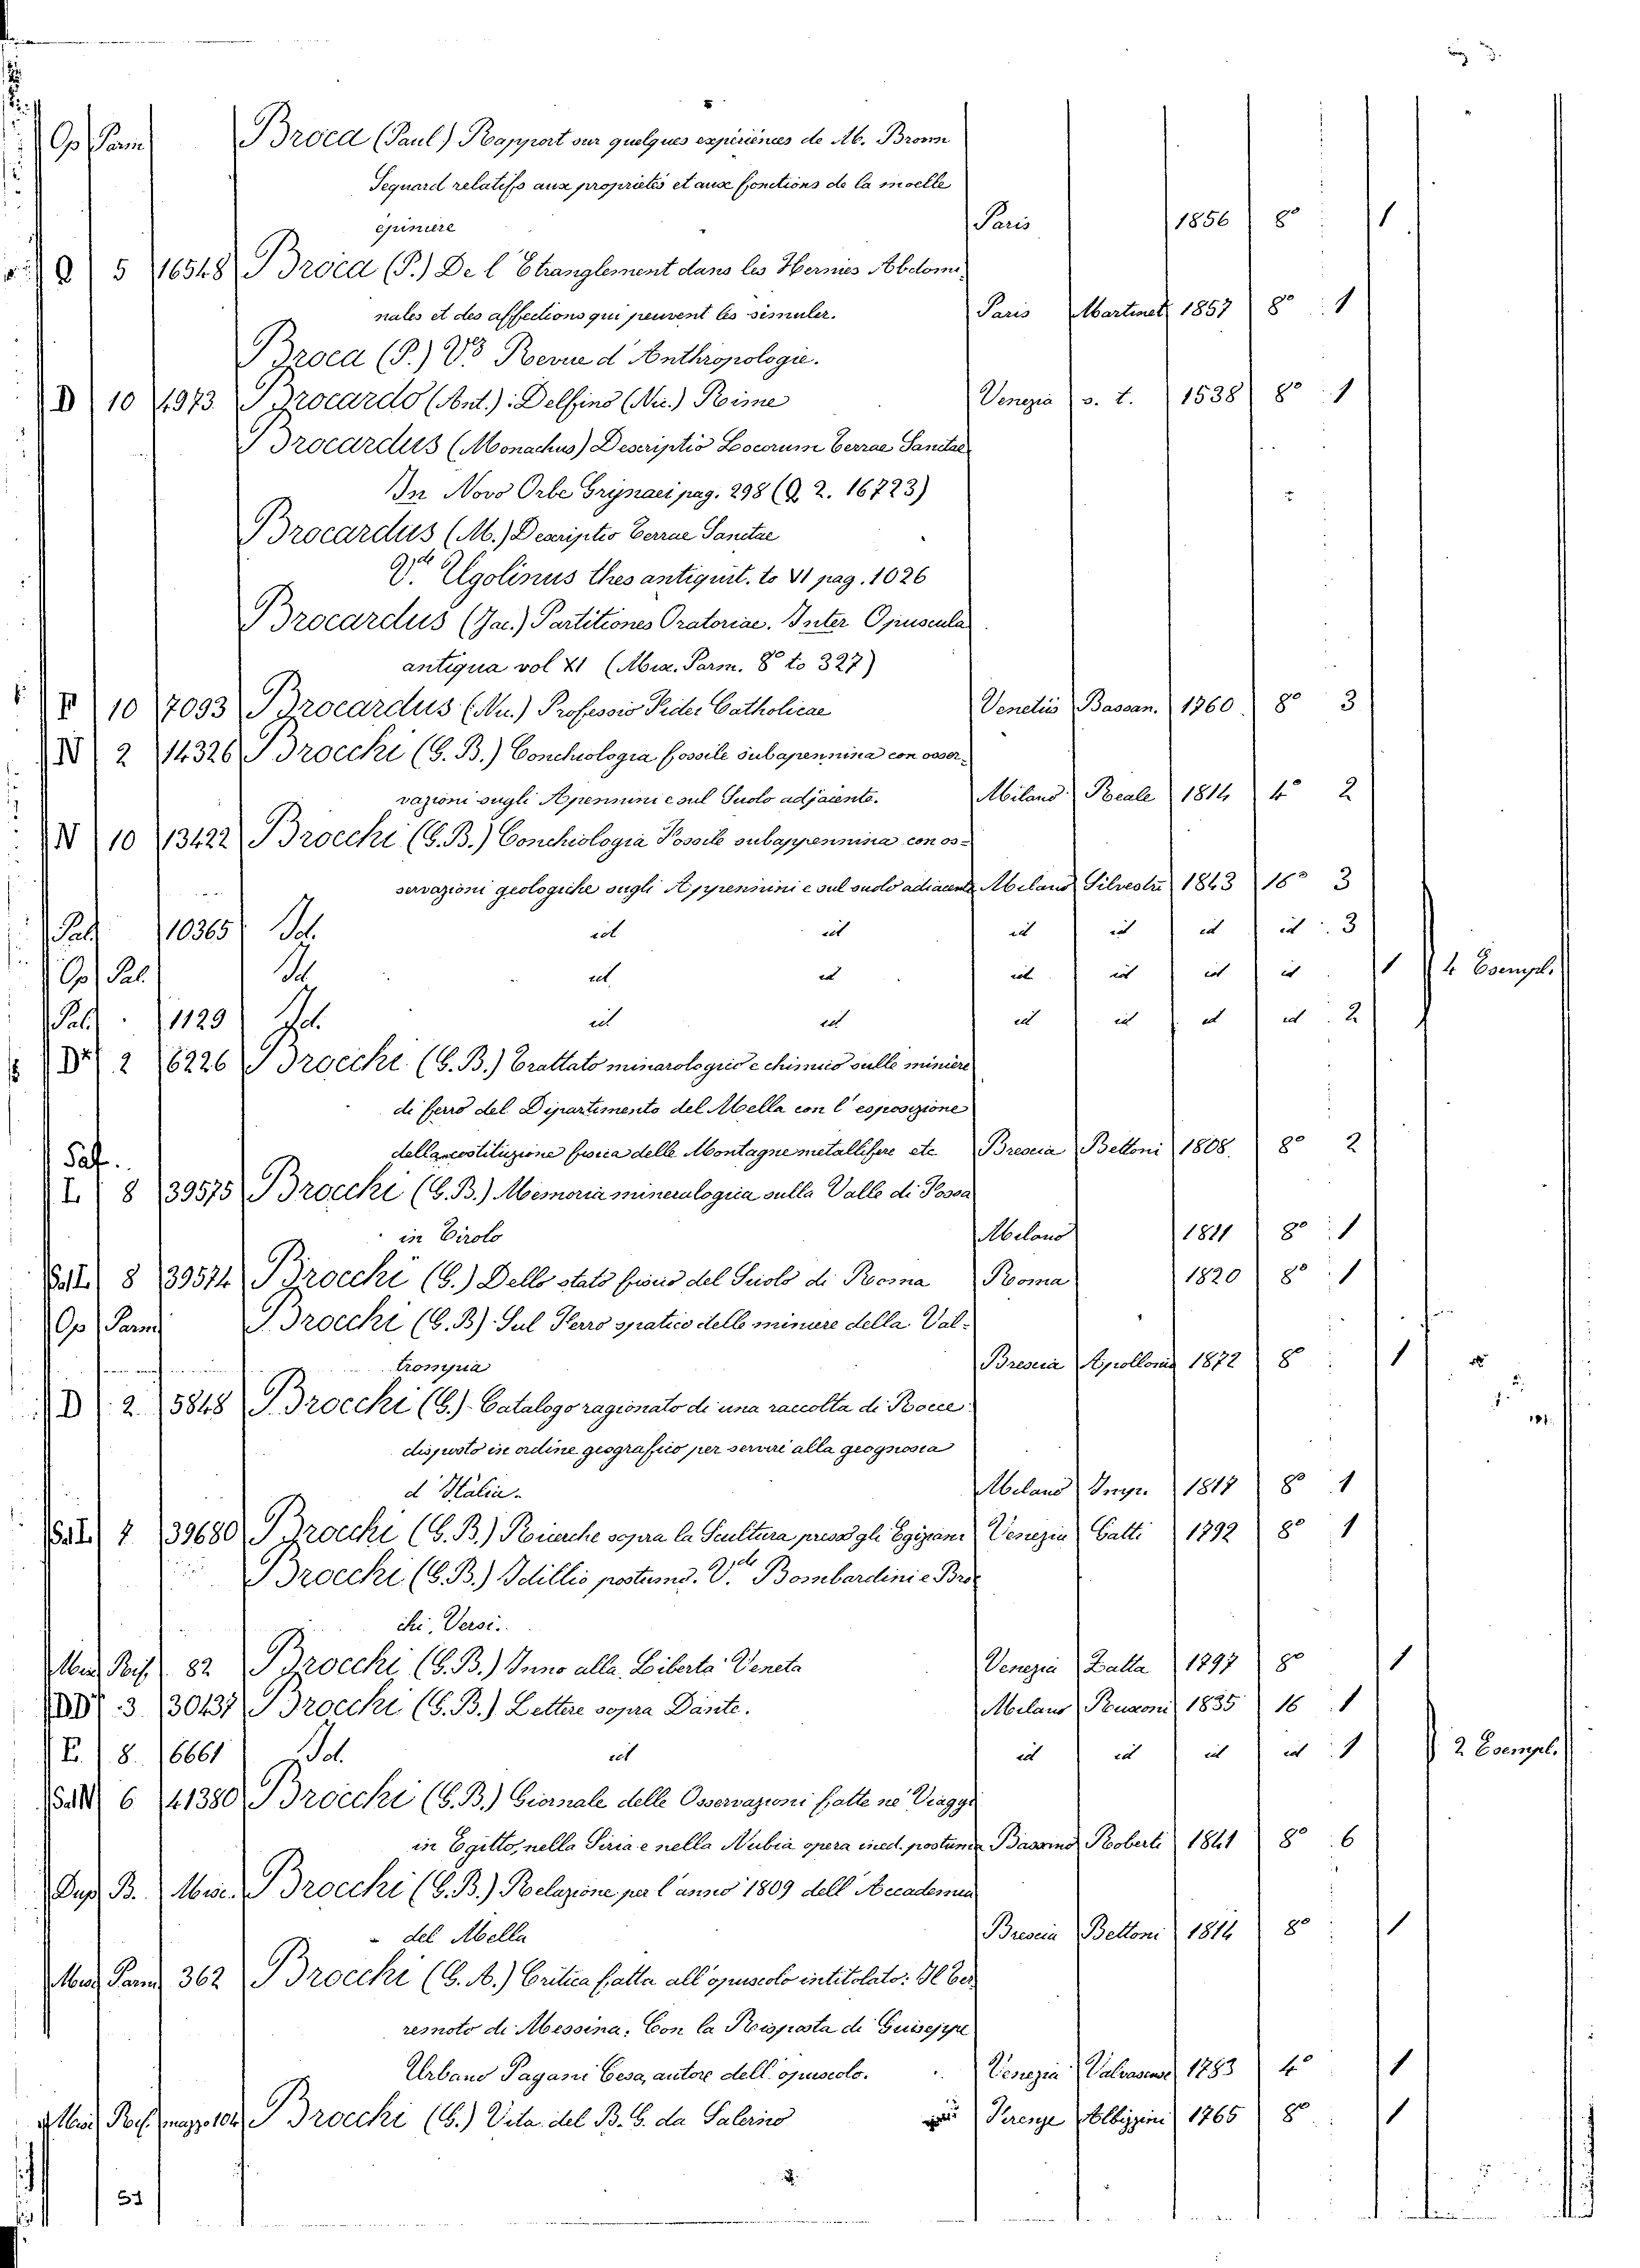 Op Parm Broca (Paul) Rapport sur quelques expériénces de M. Brown
Sequard relatifs aux proprietés et aux fonctions de la moelle
épiniere Paris 1856 8° 1
Q 5 16548 Broca (P.) De l'Etranglement dans les Hernies Abdomi-
nales et des affections qui peuvent les simuler. Paris Martinet 1857 8° 1
Broca (P.) Vd Revue d'Anthropologie.
D 10 4973 Brocardo (Ant.): Delfino (Nic.) Rime Venezia s. t. 1538 8° 1
Brocardus (Monachus) Descriptio Locorum Terrae Sanctae
In Novo Orbe Grynaei pag. 298 (Q. 2. 16723)
Brocardus (M.) Descriptio Terrae Sanctae
Vde Ugolinus thes antiquit. to VI pag. 1026
Brocardus (Jac.) Partitiones Oratoriae. Inter Opuscula
antiqua vol XI (Mix. Parm. 8° to 327)
F 10 7093 Brocardus (Nu.) Professio Fidei Catholicae Venetiis Bassan. 1760 8° 3
N 2 14326 Brocchi (G. B.) Conchiologia fossile subapennina con osser-
vazioni sugli Apennini e sul Suolo adjacente. Milano Reale 1814 4° 2
N 10 13422 Brocchi (G. B.) Conchiologia Fossile subappennina con os-
servazioni geologiche sugli Appennini e sul suolo adiacente Milano Silvestri 1843 16° 3
Pal 10365 Id. id id id id id id 3
Op Pal. Id id id id id id id 1 4 Esempl.
Pal 1129 Id. id id id id id id 2
D 2 6226 Brocchi (G. B.) Trattato minarologico e chimico sulle miniere
di ferro del Dipartimento del Mella con l'esposizione
della costituzione fisica delle Montagne metallifere etc Brescia Bettoni 1808. 8° 2
Saf.
L 8 39575 Brocchi (G. B.) Memoria mineralogica sulla Valle di Fassa
in Tirolo Milano 1811 8° 1
8 39574 Brocchi (G.) Dello stato fisico del Suolo di Roma Roma 1820 8° 1
Op Parm Brocchi (G. B) Sul Ferro spatico delle miniere della Val-
trompia Brescia Apollonio 1872 8 1
D 2 5848 Brocchi (G.) Catalogo ragionato di una raccolta di Rocce
disposto in ordine geografico per servire alla geognosia
d'Italia. Milano Imp. 1817 8° 1
7 39680 Brocchi (G. B.) Ricerche sopra la Scultura presso gli Egiziani Venezia Gatti 1792 8° 1
Brocchi (G. B.) Idillio postumo. Vde Bombardini e Broc-
chi, Versi.
82 Brocchi (G. B.) Inno alla Liberta Veneta Venezia Zatta 1797 8° 1
DD 3 30437 Brocchi (G. B.) Lettere sopra Dante. Milano Rusconi 1835 16 1
E. 8. 6661 Id. id id id id id 1 2 Esempl.
6 41380 Brocchi (G. B.) Giornale delle Osservazioni fatte ne' Viaggi
in Egitto, nella Siria e nella Nubia opera ined. postuma Bassano Roberti 1841 8° 6
Dup B. Misc. Brocchi (G. B.) Relazione per l'anno 1809 dell'Accademia
del Mella Brescia Bettoni 1814 8° 1
Misc Parm 362 Brocchi (G. A.) Critica fatta all'opuscolo intitolato: Il Ter-
remoto di Messina. Con la Risposta di Guiseppe
Urbano Pagani Cesa, autore dell'opuscolo. Venezia Valvasense 1783 4° 1
mazzo 104 Brocchi (G.) Vita del B. G. da Salerno Firenze Albizzini 1765 8° 1
51